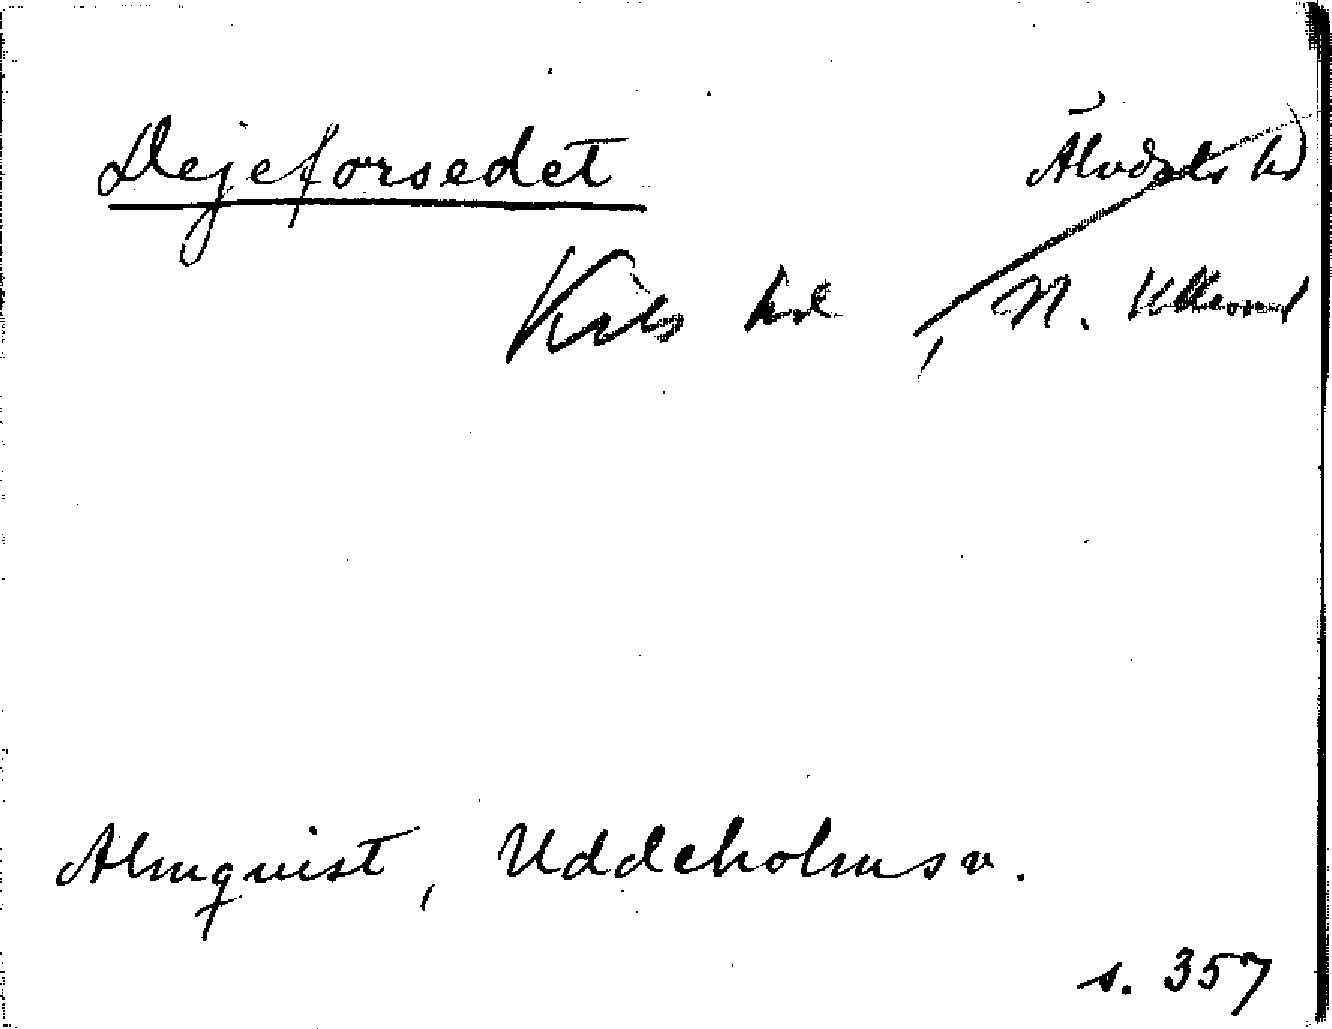 Dejeforsedet
Älvdals hd
Kils hd, N. Ullerud
Almquist, Uddeholmsv.
s. 357